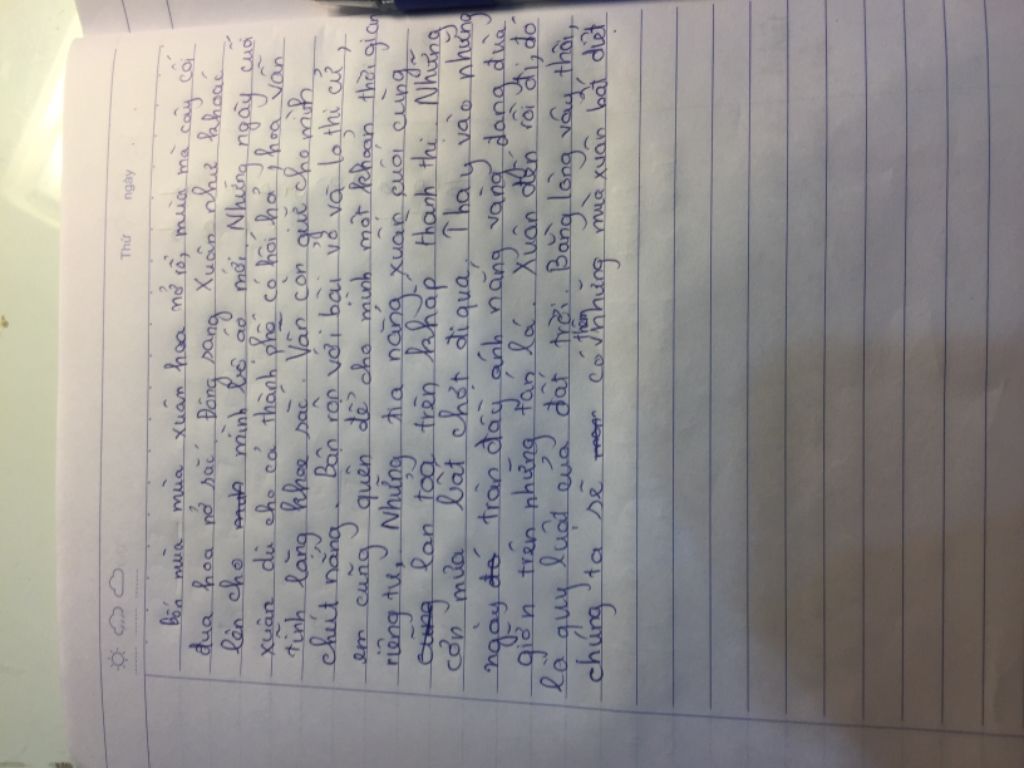 Thứ ngày
Bốn mùa mùa xuân hoa nở rộ, mùa mà cây cối
đua hoa nở sắc Đông sang Xuân như khoác
lên cho mình bộ áo mới Những ngày cuối
xuân dù cho cả thành phố có hối hả, hoa vẫn
tĩnh lặng khoe sắc. Vẫn còn giữ cho mình
chút nắng. Bận rộn với bài vở và lo thi cử,
em cũng quên để cho mình một khoản thời gian
riêng tư, Những tia nắng xuân cuối cùng
lan tỏa trên khắp thành thị Những
cơn mưa lất chợt đi qua, Thay vào những
ngày tràn đầy ánh nắng vàng đang đùa
giỡn trên những tán lá. Xuân đến rồi đi, đó
là quy luật của đất trời. Bằng lòng vậy thôi,
chúng ta sẽ có thêm những mùa xuân bất dứt